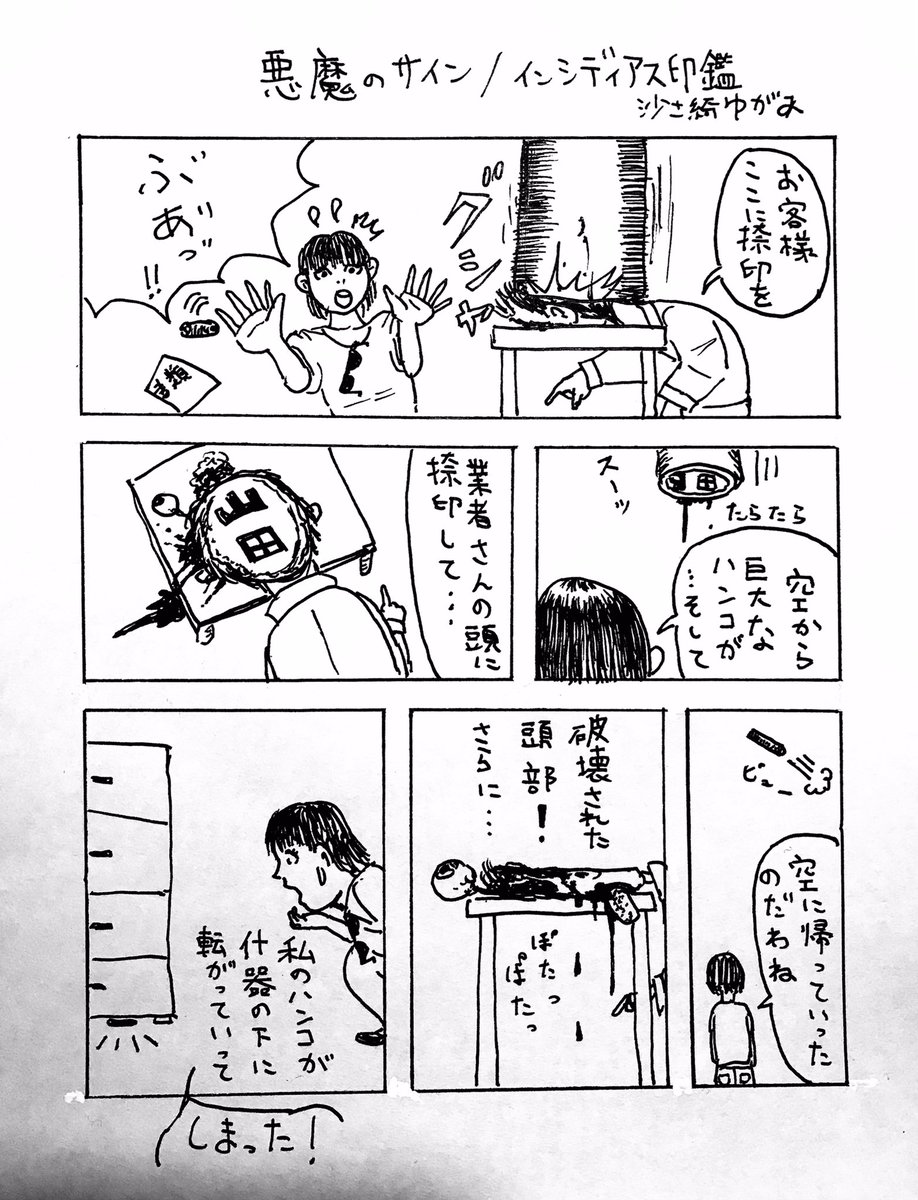 悪魔のサイン/インシディアス印鑑
沙さ綺ゆがみ
お客様
ここに捺印を
グシャ
ぶあっ!!
書類
スーッ
たらたら
空から
巨大な
ハンコが
…そして
業者さんの頭に
捺印して…
山田
ピュー
空に帰っていった
のだわね
破壊された
頭部!
さらに…
ぽたっ
ぽたっ
私のハンコが
什器の下に
転がっていって
しまった!